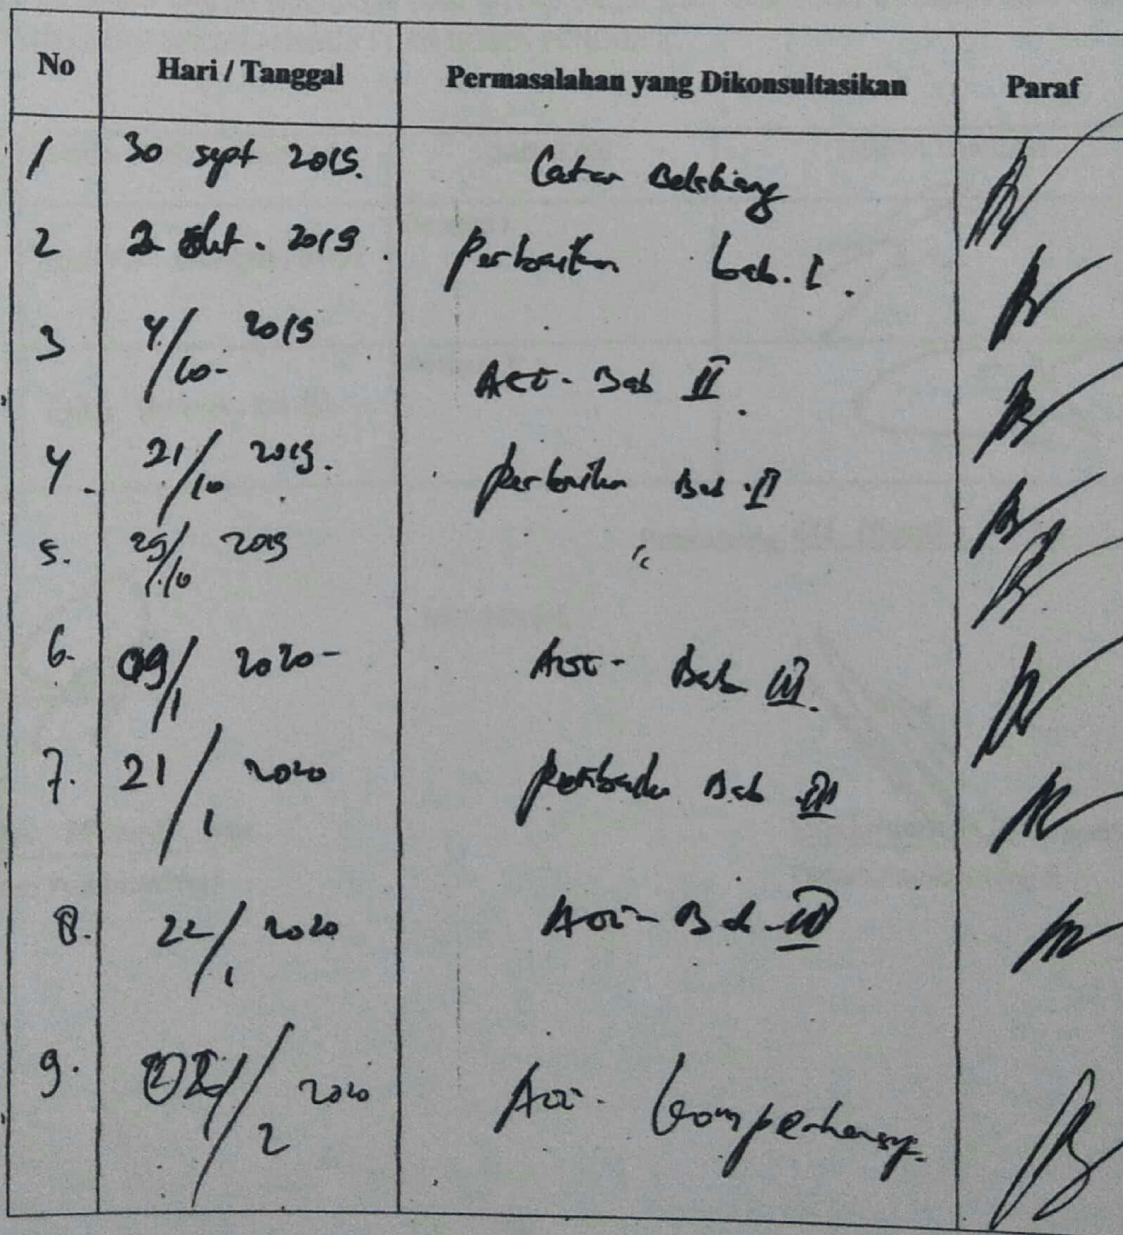 No Hari / Tanggal Permasalahan yang Dikonsultasikan Paraf
1 30 sept 2019. Latar Belakang
2 2 Okt. 2019. Perbaikan bab. I.
3 4/10- 2019 Acc- Bab II.
4. 21/10 2019. Perbaikan Bab. II
5. 29/10 2019 "
6. 09/1 2020- Acc- Bab III.
7. 21/1 2020 Perbaikan Bab III
8. 22/1 2020 Acc- Bab
9. /2 2020 Acc- Komperhensif.